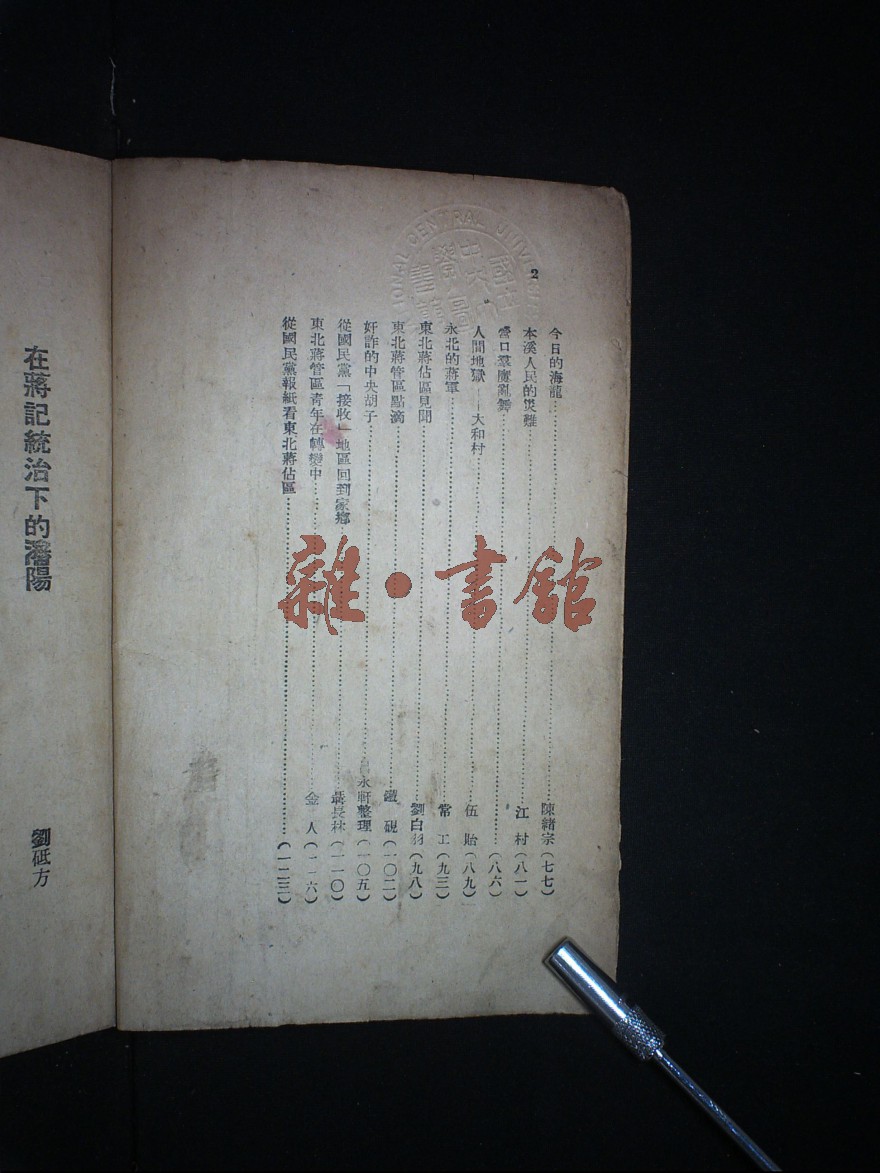 2
今日的海龍⋯⋯陳緒宗(七七)
本溪人民的災難⋯⋯江村(八一)
營口羣魔亂舞⋯⋯(八六)
人間地獄——大和村⋯⋯伍貽(八九)
永北的蔣軍⋯⋯常工(九三)
東北蔣佔區見聞⋯⋯劉白羽(九八)
東北蔣管區點滴⋯⋯鐵硯(一〇二)
奸詐的中央胡子⋯⋯永軒整理(一〇五)
從國民黨「接收」地區回到家鄉⋯⋯聶長林(一一〇)
東北蔣管區青年在轉變中⋯⋯金人(一一六)
從國民黨報紙看東北蔣佔區⋯⋯(一二三)
在蔣記統治下的瀋陽
劉砥方
雜·書館